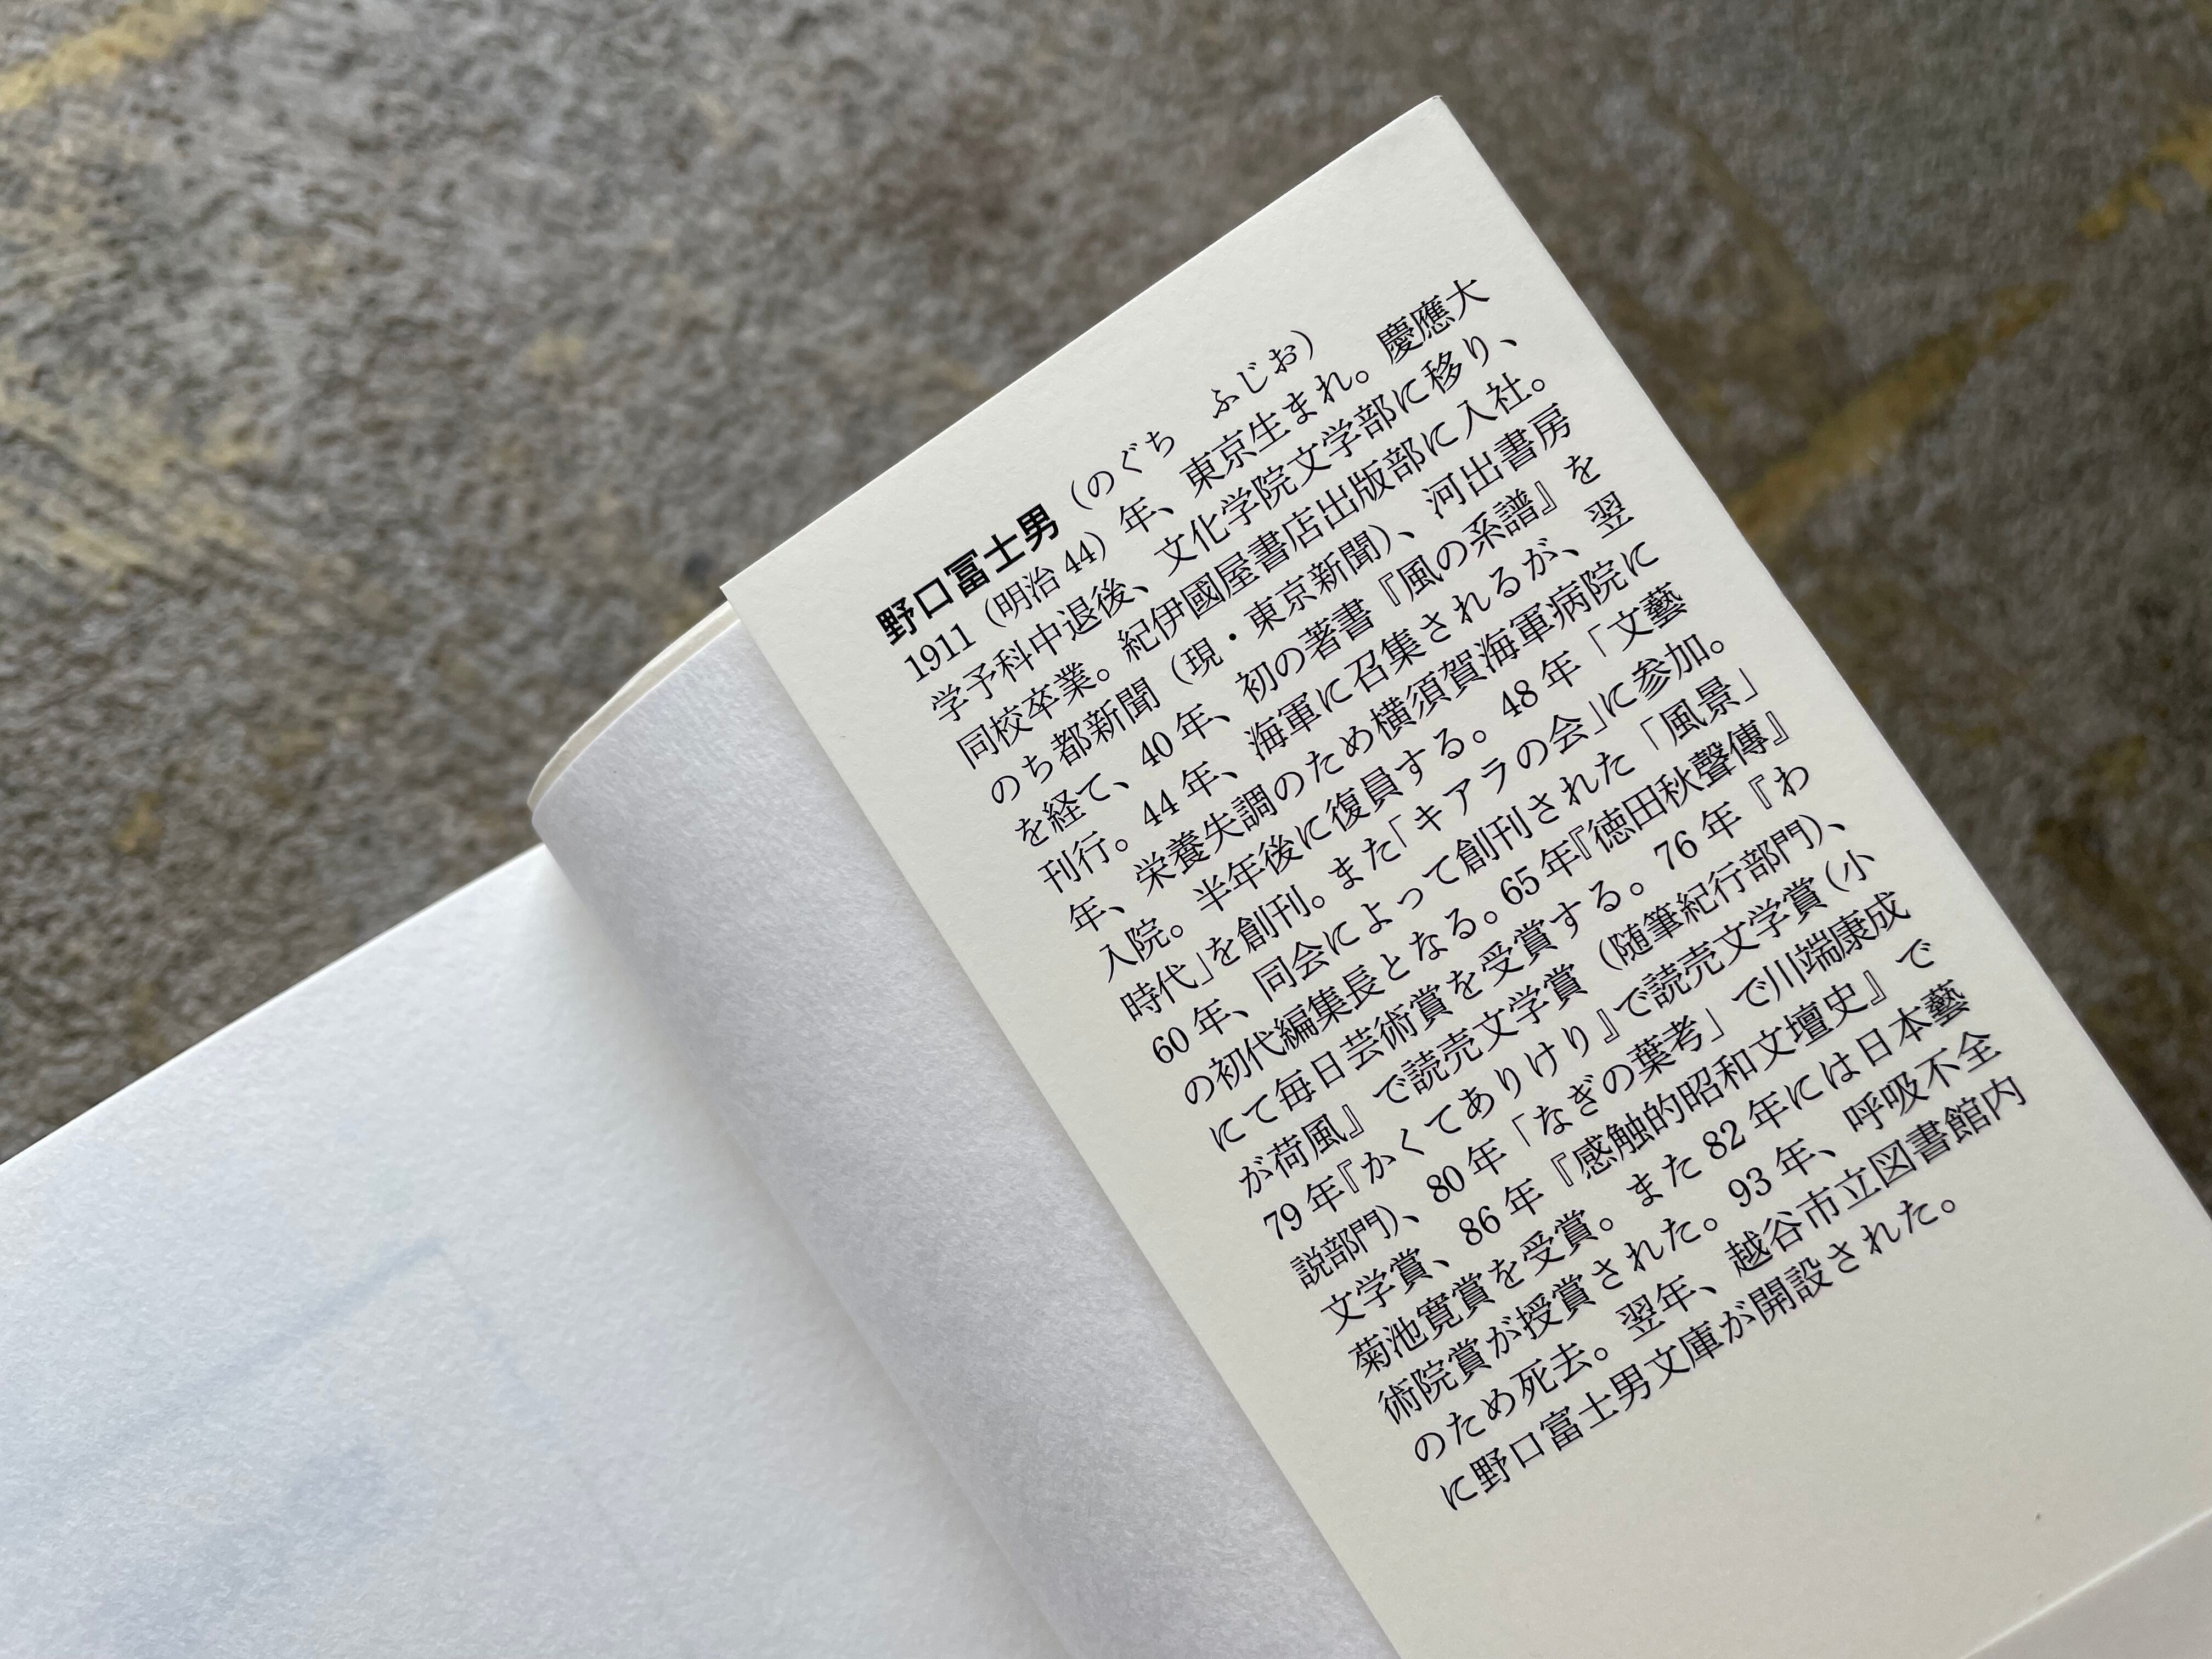 野口冨士男（のぐち　ふじお）
1911（明治44）年、東京生まれ。慶應大
学予科中退後、文化学院文学部に移り、
同校卒業。紀伊國屋書店出版部に入社。
のち都新聞（現・東京新聞）、河出書房
を経て、40年、初の著書『風の系譜』を
刊行。44年、海軍に召集されるが、翌
年、栄養失調のため横須賀海軍病院に
入院。半年後に復員する。48年「文藝
時代」を創刊。また「キアラの会」に参加。
60年、同会によって創刊された「風景」
の初代編集長となる。65年『徳田秋聲傳』
にて毎日芸術賞を受賞する。76年『わ
が荷風』で読売文学賞（随筆紀行部門）、
79年『かくてありけり』で読売文学賞（小
説部門）、80年「なぎの葉考」で川端康成
文学賞、86年『感触的昭和文壇史』で
菊池寛賞を受賞。また82年には日本藝
術院賞が授賞された。93年、呼吸不全
のため死去。翌年、越谷市立図書館内
に野口冨士男文庫が開設された。